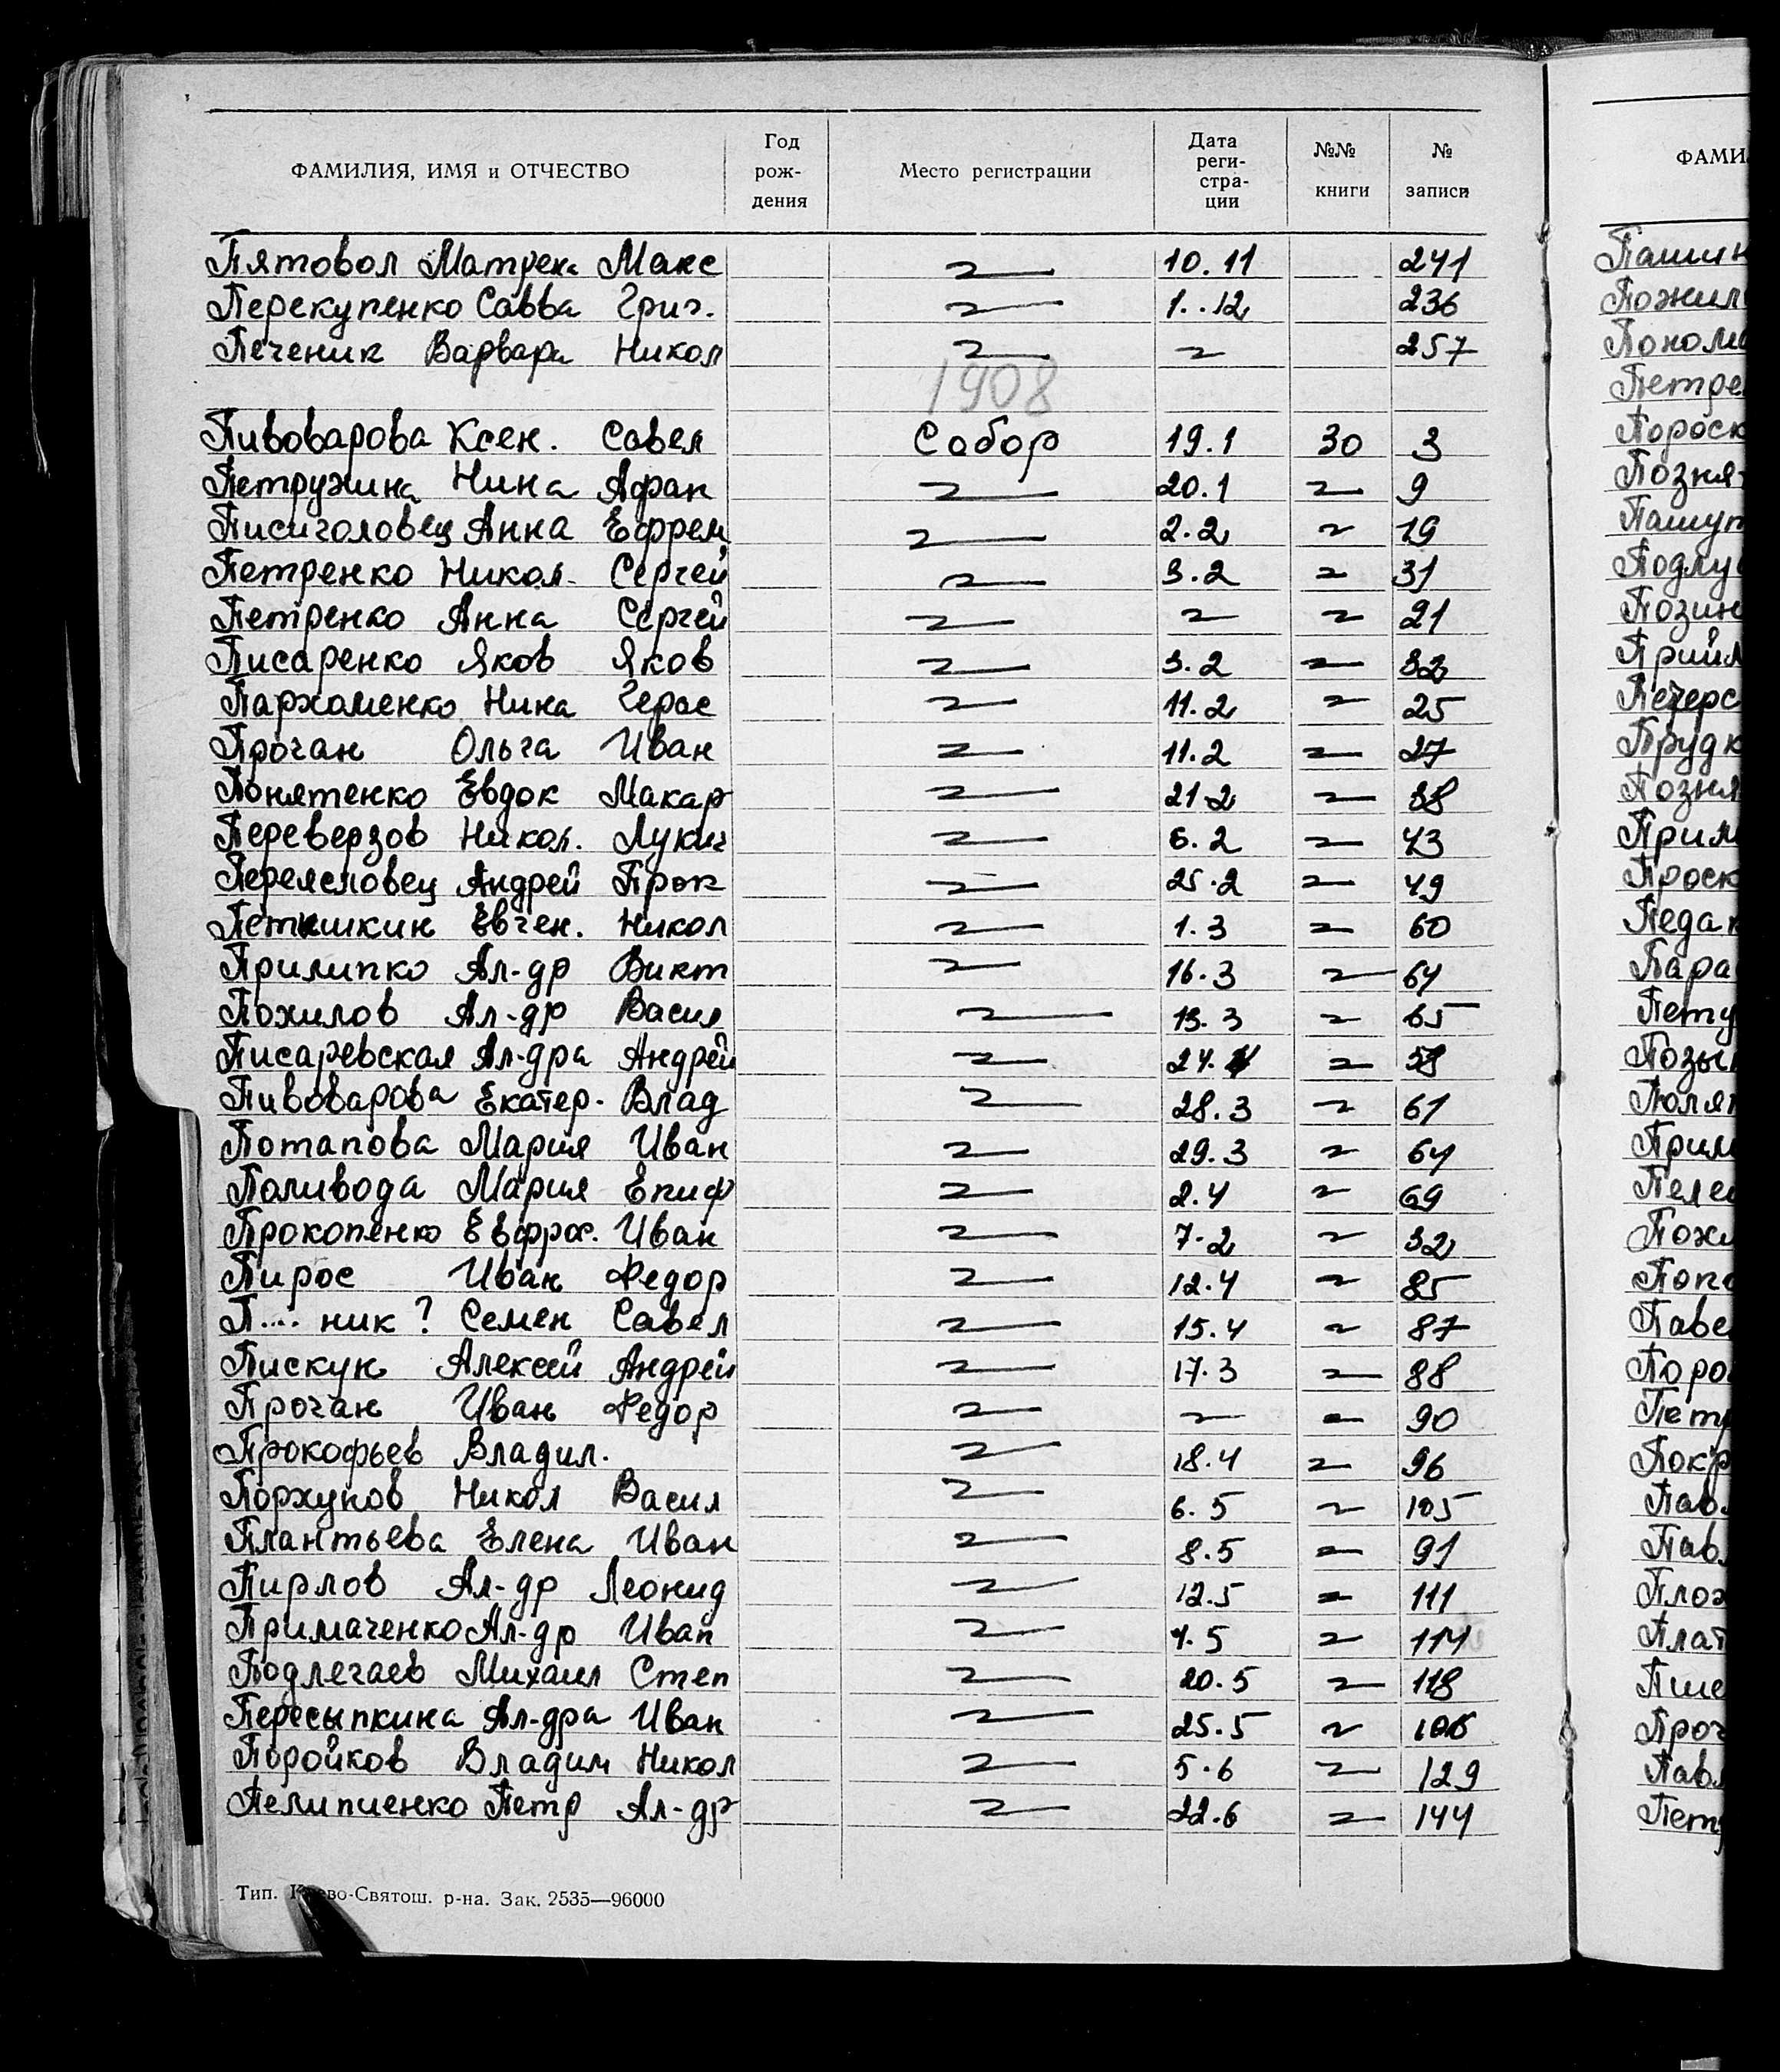 ФАМИЛИЯ, ИМЯ и ОТЧЕСТВО Год рождения Место регистрации Дата регистрации №№ книги № записи ФАМИ
Пятовол Матрена Макс 10.11 241
Перекупенко Савва Григ. 1..12 236
Печеник Варвара Никол 257
1908
Пивоварова Ксен. Савел Собор 19.1 30 3
Петружина Нина Афан 20.1 9
Писиголовец Анна Ефрем 2.2 19
Петренко Никол. Сергей 3.2 31
Петренко Анна Сергей 21
Писаренко Яков Яков 3.2 32
Пархоменко Нина Герас 11.2 25
Прочан Ольга Иван 11.2 27
Понятенко Евдок Макар 21.2 38
Переверзов Никол. Лукич 6.2 43
Переясловец Андрей Прок 25.2 49
Евген. Никол 1.3 60
Прилипко Ал-др Викт 16.3 64
Похилов Ал-др Васил 13.3 65
Писаревская Ал-дра Андрей 24. 58
Пивоварова Екатер. Влад 28.3 61
Потапова Мария Иван 29.3 64
Поливода Мария Епиф 2.4 69
Прокопенко Евфрос. Иван 7.2 32
Пирос Иван Федор 12.4 85
П.... ник? Семен Савел 15.4 87
Пискун Алексей Андрей 17.3 88
Прочан Иван Федор 90
Прокофьев Владим. 18.4 96
Порхунов Никол Васил 6.5 105
Плантьева Елена Иван 8.5 91
Пирлов Ал-др Леонид 12.5 111
Примаченко Ал-др Иван 4.5 114
Подлегаев Михаил Степ 20.5 118
Пересыпкина Ал-дра Иван 25.5 106
Поройков Владим Никол 5.6 129
Пелипиенко Петр Ал-др 22.6 144
Тип. Киево-Святош. р-на. Зак. 2535—96000